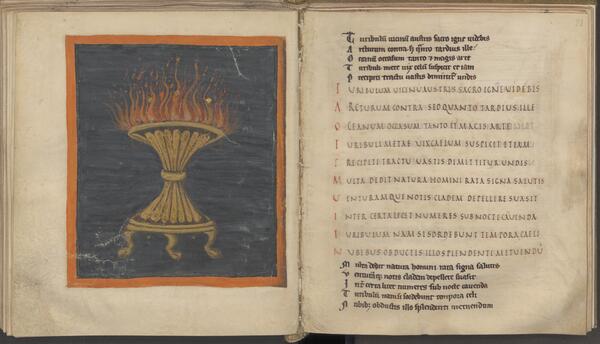 Turibulum uicinu austris sacro igne uidebis
Arcturum contra sed quanto tardius ille
Oceanu occasum tanto & magis arte
Turibulu metae
Precipiti tractu uastis dimittitur undis
TURIBULUM UICINU AUSTRIS SACRO IGNE UIDEBIS
ARCTURUM CONTRA SED QUANTO TARDIUS ILLE
OCEANUM OCCASUM TANTO ET MAGIS ARTE
TURIBULUM METAE UIX CAELUM SUSPICET ETIAM
PRECIPITI TRACTU UASTIS DIMITTITUR UNDIS
MULTA DEDIT NATURA HOMINI RATA SIGNA SALUTIS
UENTURAMQUE NOTIS CLADEM DEPELLERE SUASIT
INTER CERTA LICET NUMERES SUB NOCTE CAUENDA
TURIBULUM NAM SI SORDEBUNT TEMPORA CAELI
NUBIBUS OBDUCTIS ILLO SPLENDENTI METUENDU
Multa dedit natura homini rata signa salutis
Uenturaq; notis cladem depellere suasit
Int certa licet numeres sub nocte cauenda
Turibulu namsi sordebunt tempora celi
Nubib; obductis illo splendenti metuendum